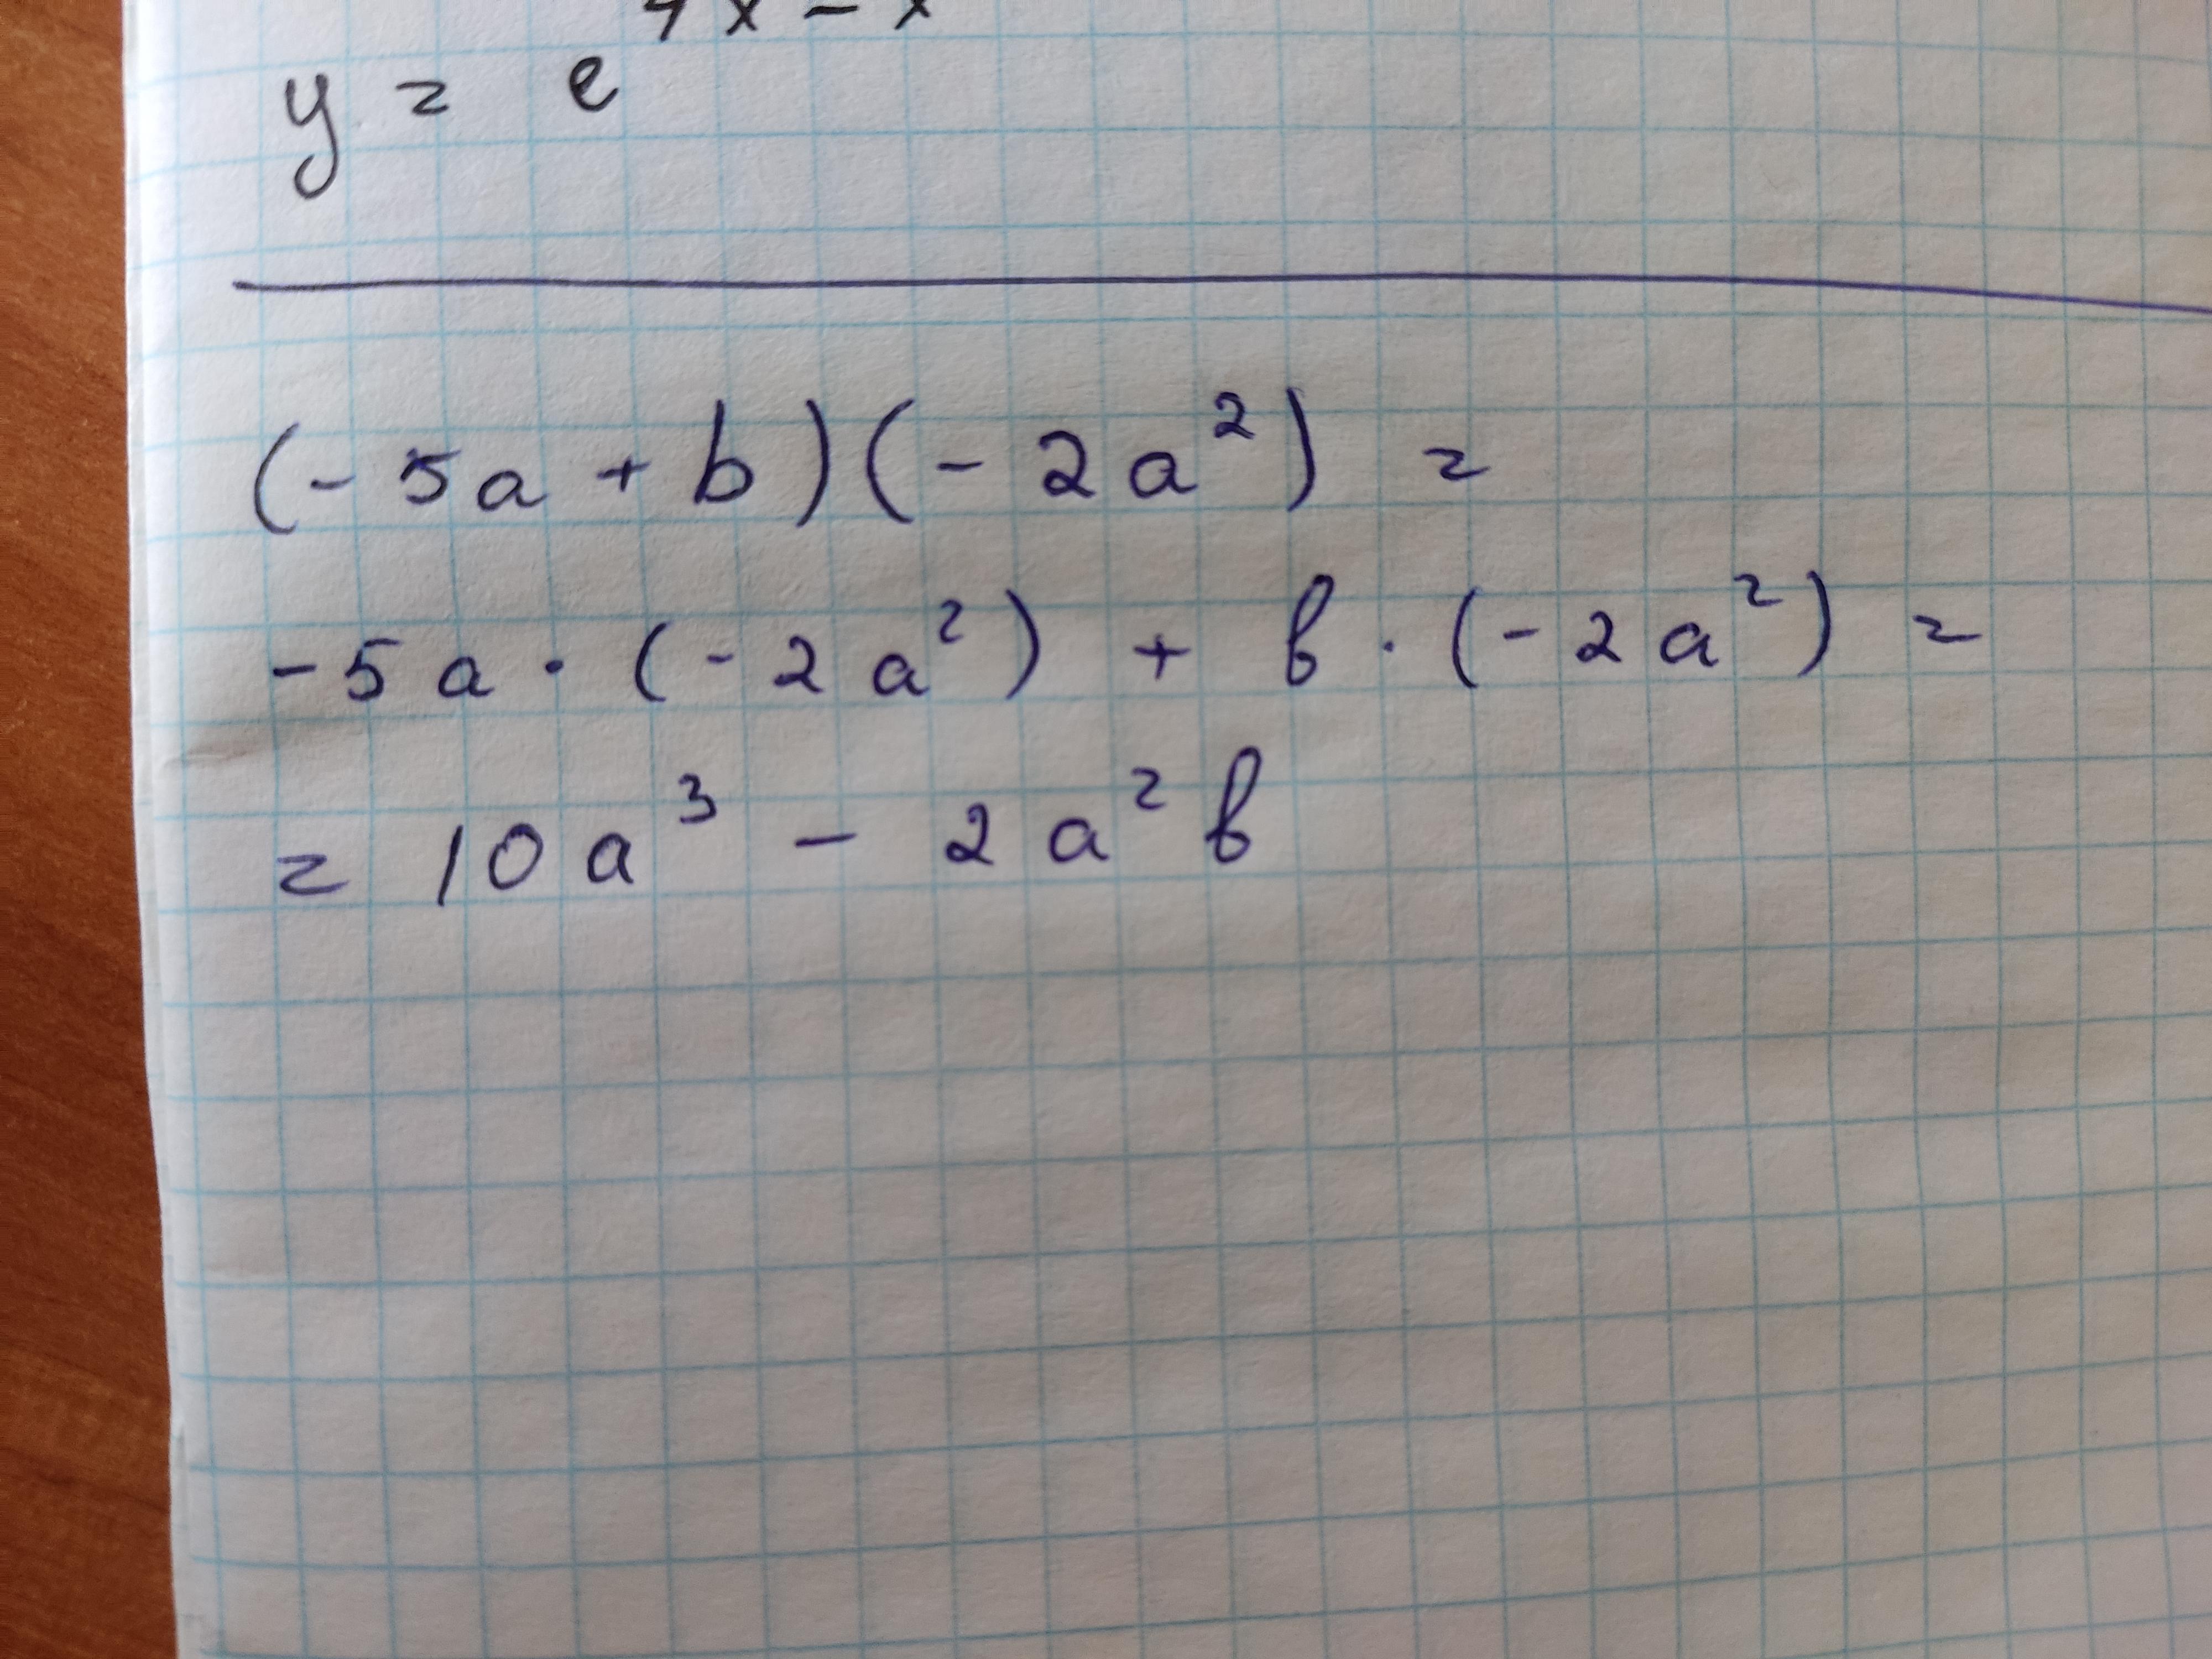 y = e^{7x-x}
(-5a + b)(-2a²) =
-5a · (-2a²) + b · (-2a²) =
= 10a³ - 2a²b